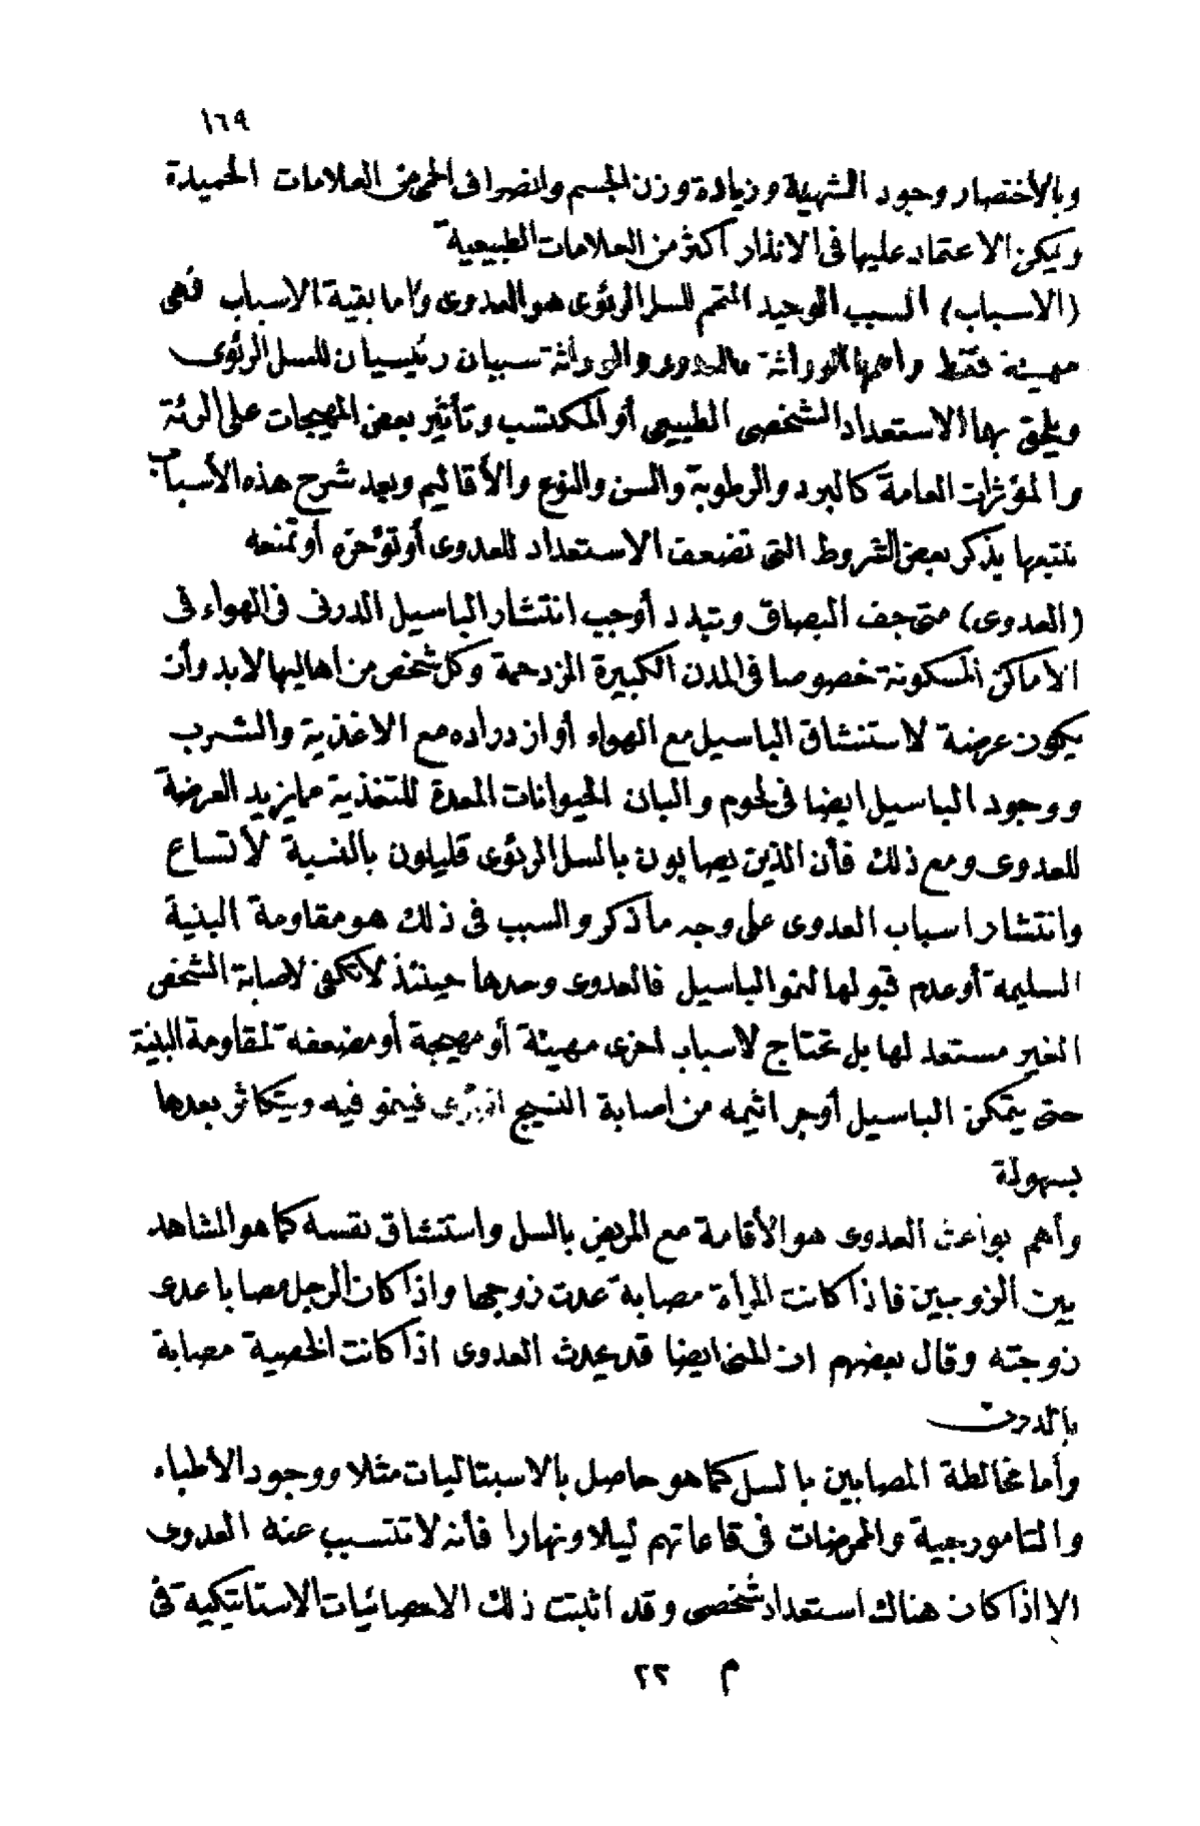 ١٦٩
وبالأختصار وجود الشهية وزيادة وزن الجسم وانصراف الحمى من العلامات الحميدة
ويمكن الاعتماد عليها فى الانذار أكثر من العلامات الطبيعية
(الاسباب) السبب الوحيد المتمم للسل الرئوى هو العدوى واما بقية الاسباب فهى
مهيئة فقط واهمها الوراثة فالعدوى والوراثة سببان رئيسيان للسل الرئوى
ويلحق بها الاستعداد الشخصى الطبيعى أو المكتسب وتأثير بعض المهيجات على الرئة
والمؤثرات العامة كالبرد والرطوبة والسن والنوع والأقاليم وبعد شرح هذه الأسباب
نتبعها بذكر بعض الشروط التى تضعف الاستعداد للعدوى أو تؤخره أو تمنعه
(العدوى) متى جف البصاق وتبدد أوجب انتشار الباسيل الدرنى فى الهواء فى
الاماكن المسكونة خصوصا فى المدن الكبيرة المزدحمة وكل شخص من اهاليها لابد وأن
يكون عرضة لاستنشاق الباسيل مع الهواء أو ازدراده مع الاغذية والشرب
ووجود الباسيل ايضا فى لحوم والبان الحيوانات المعدة للتغذية مما يزيد العرضة
للعدوى ومع ذلك فأن الذين يصابون بالسل الرئوى قليلون بالنسبة لأتساع
وانتشار اسباب العدوى على وجه ما ذكر والسبب فى ذلك هو مقاومة البنية
السليمة أو عدم قبولها لنمو الباسيل فالعدوى وحدها حينئذ لاتكفى لاصابة الشخص
الغير مستعد لها بل تحتاج لاسباب اخرى مهيئة أو مهيجة أو مضعفة لمقاومة البنية
حتى يتمكن الباسيل أو جراثيمه من اصابة النسيج الرئوى فينمو فيه ويتكاثر بعدها
بسهولة
وأهم بواعث العدوى هو الأقامة مع المريض بالسل واستنشاق نفسه كما هو المشاهد
بين الزوجين فاذا كانت المرأة مصابة عدت زوجها واذا كان الرجل مصابا عدى
زوجته وقال بعضهم ان المنى ايضا قد يحدث العدوى اذا كانت الخصية مصابة
بالدرن
وأما مخالطة المصابين بالسل كما هو حاصل بالاسبتاليات مثلا ووجود الأطباء
والتامورجية والممرضات فى قاعاتهم ليلا ونهارا فأنه لا تتسبب عنه العدوى
الا اذا كان هناك استعداد شخصى وقد اثبتت ذلك الاحصائيات الاستاتيكية فى
م ٢٢